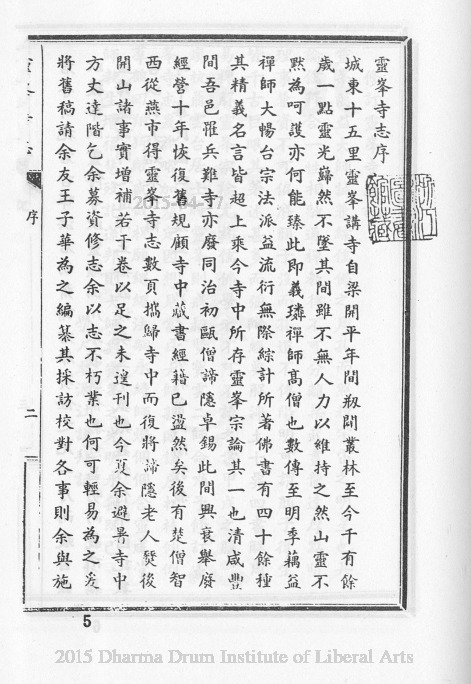 靈峯寺志序
城東十五里靈峯講寺自梁開平年間剏闢叢林至今千有餘
歲一點靈光歸然不墜其間雖不無人力以維持之然山靈不
黙為呵護亦何能臻此即義璘禪師高僧也數傳至明季藕益
禪師大暢台宗法派益流衍無際綜計所著佛書有四十餘種
其精義名言皆超上乘今寺中所存靈峯宗論其一也清咸豐
間吾邑罹兵難寺亦廢同治初甌僧諦隱卓錫此間興衰舉廢
經營十年恢復舊規顧寺中藏書經籍已盪然矣後有楚僧智
西從燕市得靈峯寺志數頁攜歸寺中而復將諦隱老人燹後
開山諸事實增補若干卷以足之未遑刊也今夏余避暑寺中
方丈達階乞余募資修志余以志不朽業也何可輕易為之爰
將舊稿請余友王子華為之編纂其採訪校對各事則余與施
序
二
5
2015 Dharma Drum Institute of Liberal Arts